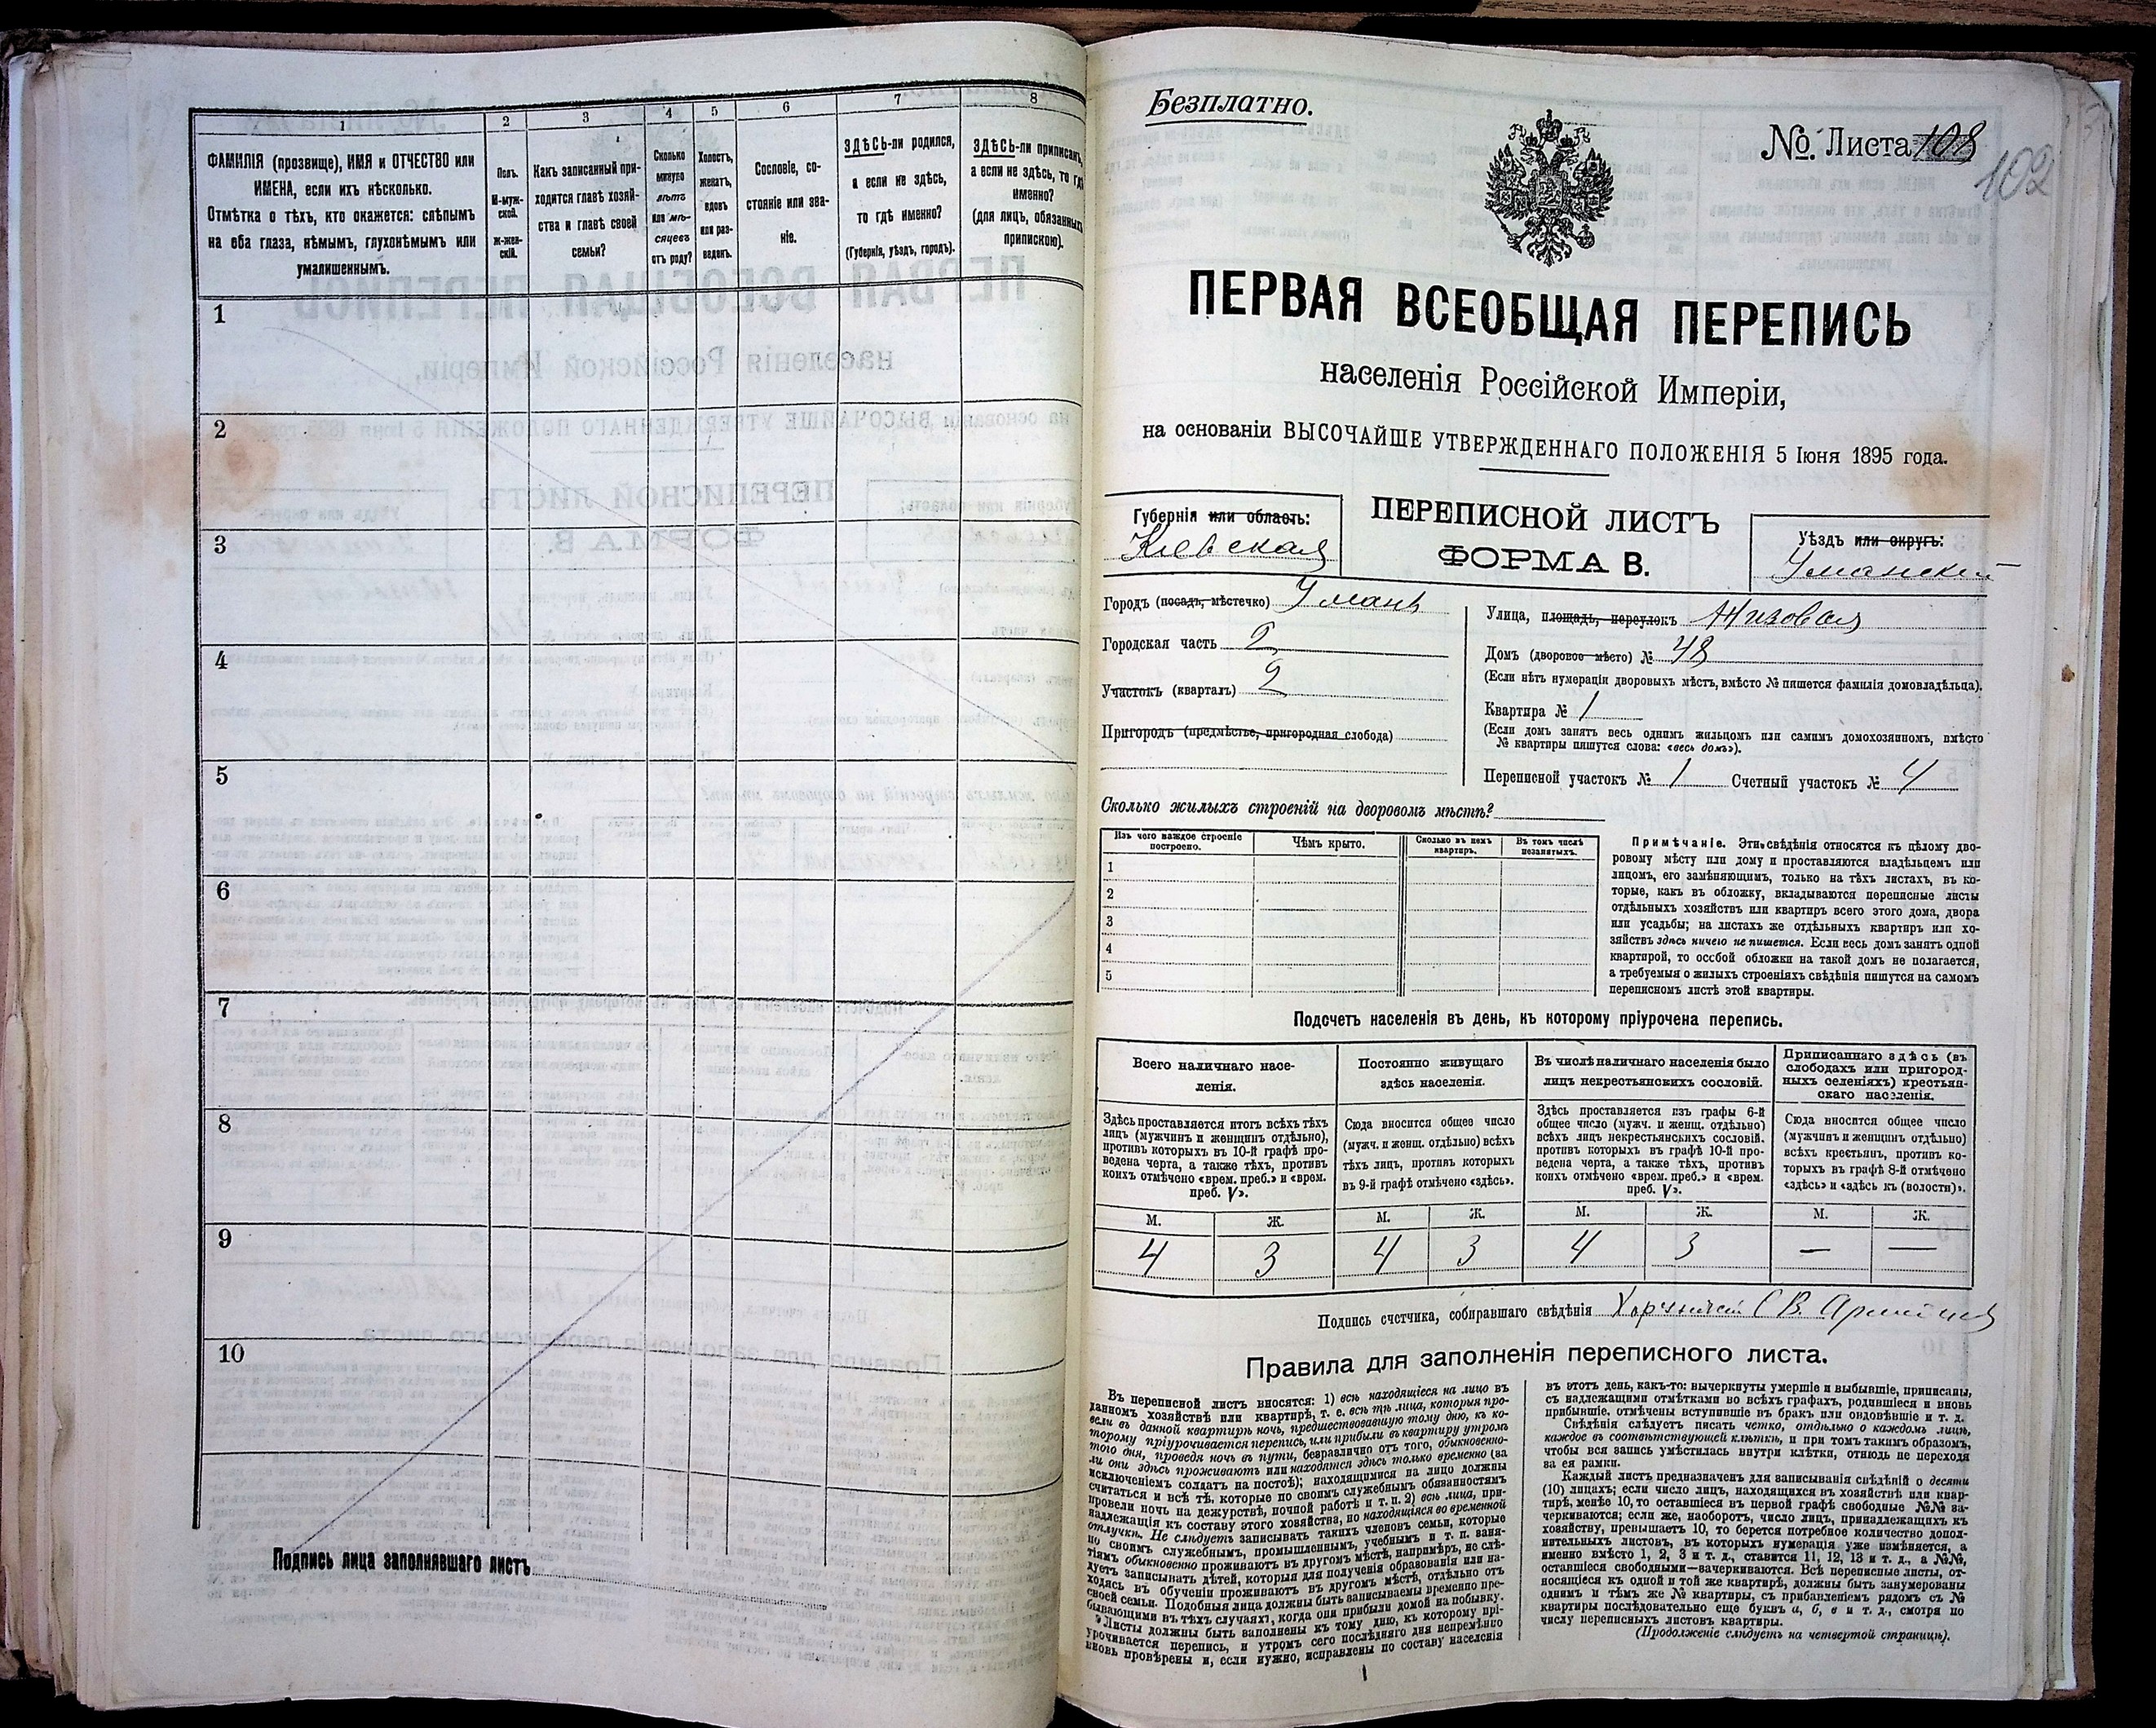 1
2
3
4
5
6
7
8
ФАМИЛІЯ (прозвище), ИМЯ и ОТЧЕСТВО или
ИМЕНА, если ихъ нѣсколько.
Отмѣтка о тѣхъ, кто окажется: слѣпымъ
на оба глаза, нѣмымъ, глухонѣмымъ или
умалишеннымъ.
Полъ.
М-муж-
ской.
ж-жен-
скій.
Какъ записанный при-
ходится главѣ хозяй-
ства и главѣ своей
семьи?
Сколько
минуло
лѣтъ
или мѣ-
сяцевъ
отъ роду?
Холостъ,
женатъ,
вдовъ
или раз-
веденъ.
Сословіе, со-
стояніе или зва-
ніе.
ЗДѢСЬ-ли родился,
а если не здѣсь,
то гдѣ именно?
(Губернія, уѣздъ, городъ).
ЗДѢСЬ-ли приписанъ,
а если не здѣсь, то гдѣ
именно?
(для лицъ, обязанныхъ
припискою).
1
2
3
4
5
6
7
8
9
10
Подпись лица заполнявшаго листъ
Безплатно.
№ Листа 108
102
ПЕРВАЯ ВСЕОБЩАЯ ПЕРЕПИСЬ
населенія Россійской Имперіи,
на основаніи ВЫСОЧАЙШЕ УТВЕРЖДЕННАГО ПОЛОЖЕНІЯ 5 Іюня 1895 года.
Губернія или область:
Кіевская
ПЕРЕПИСНОЙ ЛИСТЪ
ФОРМА В.
Уѣздъ или округъ:
Уманскій
Городъ (посадъ, мѣстечко) Умань
Городская часть 2
Участокъ (кварталъ) 2
Пригородъ (предмѣстье, пригородная слобода)
Улица, площадь, переулокъ
Домъ (дворовое мѣсто) № 48
(Если нѣтъ нумераціи дворовыхъ мѣстъ, вмѣсто № пишется фамилія домовладѣльца).
Квартира № 1
(Если домъ занятъ весь однимъ жильцомъ или самимъ домохозяиномъ, вмѣсто
№ квартиры пишутся слова: «весь домъ»).
Переписной участокъ № 1 Счетный участокъ № 4
Сколько жилыхъ строеній на дворовомъ мѣстѣ?
Изъ чего каждое строеніе
построено.
Чѣмъ крыто.
Сколько въ немъ
квартиръ.
Въ томъ числѣ
незанятыхъ.
1
2
3
4
5
Примѣчаніе. Эти свѣдѣнія относятся къ цѣлому дво-
ровому мѣсту или дому и проставляются владѣльцемъ или
лицомъ, его замѣняющимъ, только на тѣхъ листахъ, въ ко-
торые, какъ въ обложку, вкладываются переписные листы
отдѣльныхъ хозяйствъ или квартиръ всего этого дома, двора
или усадьбы; на листахъ же отдѣльныхъ квартиръ или хо-
зяйствъ здѣсь ничего не пишется. Если весь домъ занятъ одной
квартирой, то особой обложки на такой домъ не полагается,
а требуемыя о жилыхъ строеніяхъ свѣдѣнія пишутся на самомъ
переписномъ листѣ этой квартиры.
Подсчетъ населенія въ день, къ которому пріурочена перепись.
Всего наличнаго насе-
ленія.
Постоянно живущаго
здѣсь населенія.
Въ числѣ наличнаго населенія было
лицъ некрестьянскихъ сословій.
Приписаннаго здѣсь (въ
слободахъ или пригород-
ныхъ селеніяхъ) крестьян-
скаго населенія.
Здѣсь проставляется итогъ всѣхъ тѣхъ
лицъ (мужчинъ и женщинъ отдѣльно),
противъ которыхъ въ 10-й графѣ про-
ведена черта, а также тѣхъ, противъ
коихъ отмѣчено «врем. преб.» и «врем.
преб. V».
Сюда вносится общее число
(мужч. и женщ. отдѣльно) всѣхъ
тѣхъ лицъ, противъ которыхъ
въ 9-й графѣ отмѣчено «здѣсь».
Здѣсь проставляется изъ графы 6-й
общее число (мужч. и женщ. отдѣльно)
всѣхъ лицъ некрестьянскихъ сословій.
противъ которыхъ въ графѣ 10-й про-
ведена черта, а также тѣхъ, противъ
коихъ отмѣчено «врем. преб.» и «врем.
преб. V».
Сюда вносится общее число
(мужчинъ и женщинъ отдѣльно)
всѣхъ крестьянъ, противъ ко-
торыхъ въ графѣ 8-й отмѣчено
«здѣсь» и «здѣсь къ (волости)».
М. Ж. М. Ж. М. Ж. М. Ж.
4 3 4 3 4 3 — —
Подпись счетчика, собиравшаго свѣдѣнія
Правила для заполненія переписного листа.
Въ переписной листъ вносятся: 1) всѣ находящіеся на лицо въ
данномъ хозяйствѣ или квартирѣ, т. е. всѣ тѣ лица, которыя про-
вели въ данной квартирѣ ночь, предшествовавшую тому дню, къ ко-
торому пріурочивается перепись, или прибыли въ квартиру утромъ
того дня, проведя ночь въ пути, безразлично отъ того, обыкновенно-
ли они здѣсь проживаютъ или находятся здѣсь только временно (за
исключеніемъ солдатъ на постоѣ); находящимися на лицо должны
считаться и всѣ тѣ, которые по своимъ служебнымъ обязанностямъ
провели ночь на дежурствѣ, ночной работѣ и т. п. 2) всѣ лица, при-
надлежащія къ составу этого хозяйства, но находящіяся во временной
отлучкѣ. Не слѣдуетъ записывать такихъ членовъ семьи, которые
по своимъ служебнымъ, промышленнымъ, учебнымъ и т. п. заня-
тіямъ обыкновенно проживаютъ въ другомъ мѣстѣ, напримѣръ, не слѣ-
дуетъ записывать дѣтей, которыя для полученія образованія или на-
ходясь въ обученіи проживаютъ въ другомъ мѣстѣ, отдѣльно отъ
своей семьи. Подобныя лица должны быть записываемы временно пре-
бывающими въ тѣхъ случаяхъ, когда они прибыли домой на побывку.
Листы должны быть заполнены къ тому дню, къ которому прі-
урочивается перепись, и утромъ сего послѣдняго дня непремѣнно
вновь провѣрены и, если нужно, исправлены по составу населенія
въ этотъ день, какъ-то: вычеркнуты умершіе и выбывшіе, приписаны,
съ надлежащими отмѣтками во всѣхъ графахъ, родившіеся и вновь
прибывшіе. отмѣчены вступившіе въ бракъ или овдовѣвшіе и т. д.
Свѣдѣнія слѣдуетъ писать четко, отдѣльно о каждомъ лицѣ,
каждое въ соотвѣтствующей клѣткѣ, и при томъ такимъ образомъ,
чтобы вся запись умѣстилась внутри клѣтки, отнюдь не переходя
за ея рамки.
Каждый листъ предназначенъ для записыванія свѣдѣній о десяти
(10) лицахъ; если число лицъ, находящихся въ хозяйствѣ или квар-
тирѣ, менѣе 10, то оставшіеся въ первой графѣ свободные №№ за-
черкиваются; если же, наоборотъ, число лицъ, принадлежащихъ къ
хозяйству, превышаетъ 10, то берется потребное количество допол-
нительныхъ листовъ, въ которыхъ нумерація уже измѣняется, а
именно вмѣсто 1, 2, 3 и т. д., ставится 11, 12, 13 и т. д., а №№,
оставшіеся свободными—зачеркиваются. Всѣ переписные листы, от-
носящіеся къ одной и той же квартирѣ, должны быть занумерованы
однимъ и тѣмъ же № квартиры, съ прибавленіемъ рядомъ съ №
квартиры послѣдовательно еще буквъ а, б, в и т. д., смотря по
числу переписныхъ листовъ квартиры.
(Продолженіе слѣдуетъ на четвертой страницѣ).